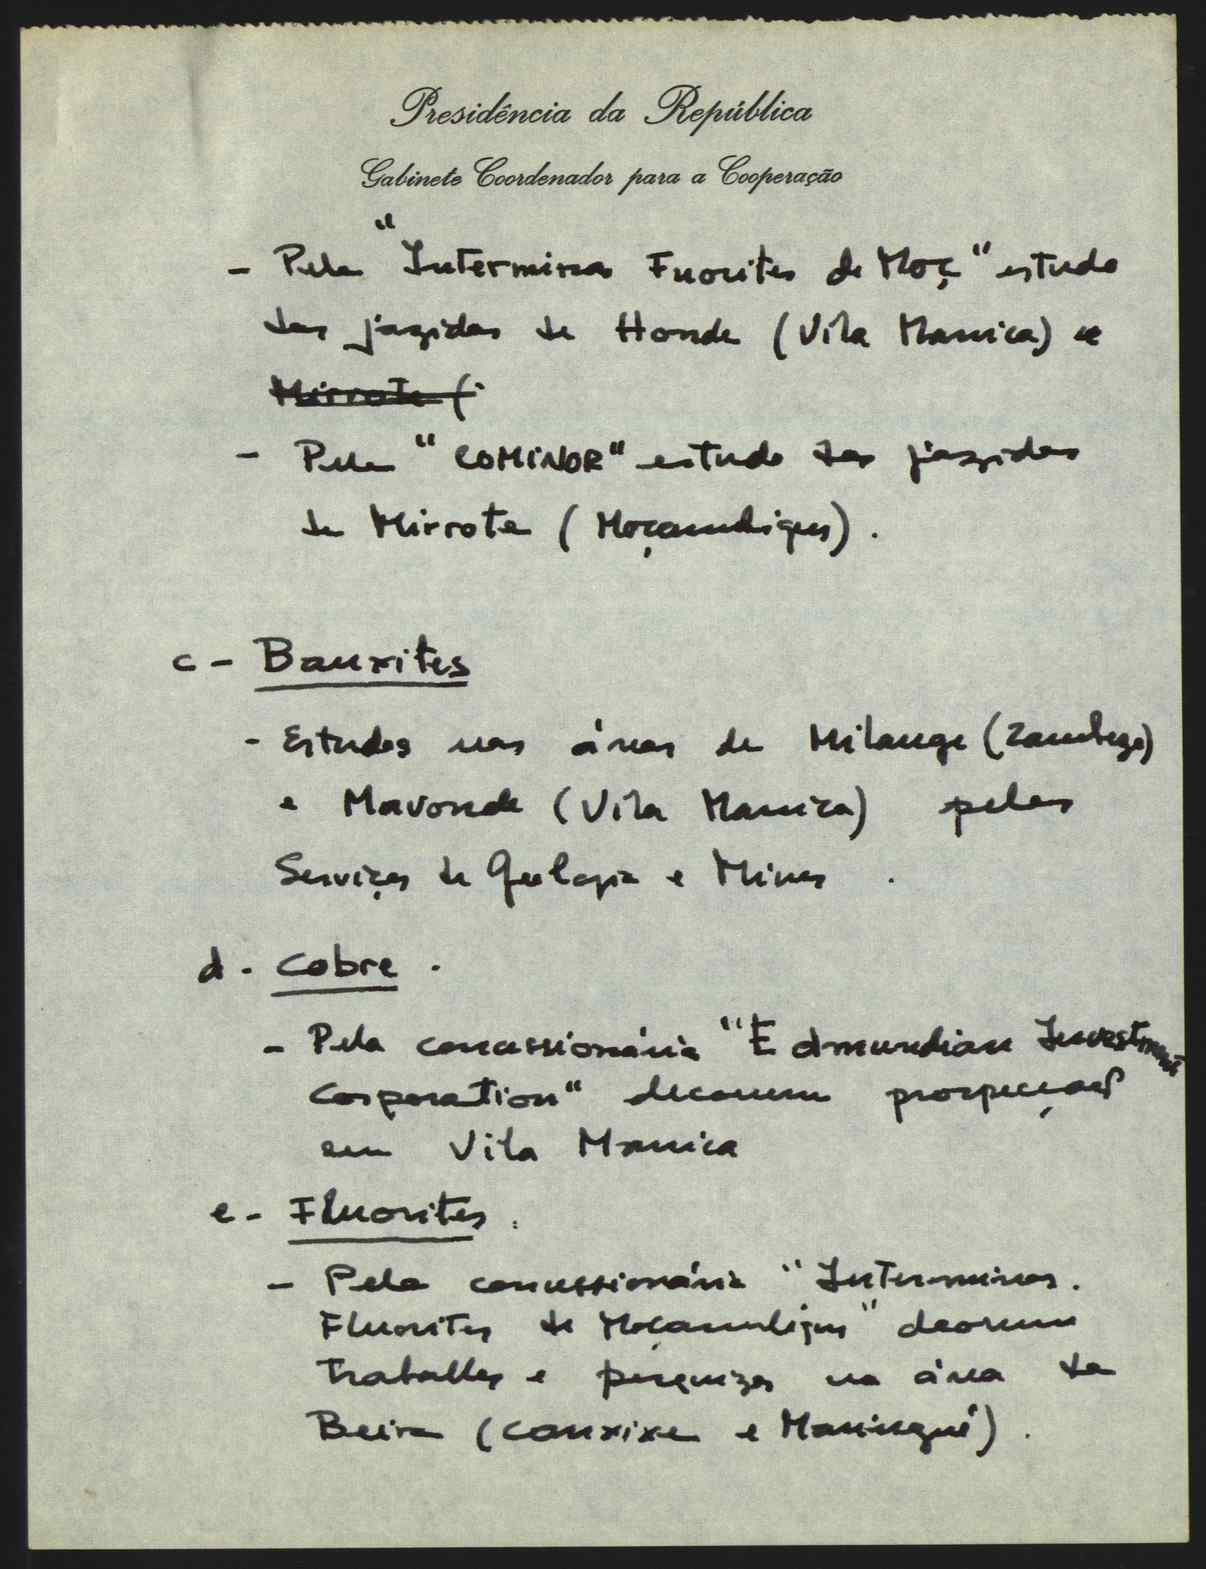 Presidência da República
Gabinete Coordenador para a Cooperação
- Pela "Interminas Fuorites de Moç" estudo
das jazidas de Honde (Vila Manica) e
Mirrote (
- Pela "COMINOR" estudo das jazidas
de Mirrote (Moçambique).
c - Bauxites
- Estudos nas áreas de Milange (Zambeze)
e Mavonde (Vila Manica) pelos
Serviços de Geologia e Minas.
d - Cobre.
- Pela concessionária "Edmundian Investment
Corporation" decorrem prospecções
em Vila Manica
e - Fluorites.
- Pela concessionária "Interminas.
Fluorites de Moçambique" decorrem
trabalhos e pesquizas na área da
Beira (Canxixe e Maningué).